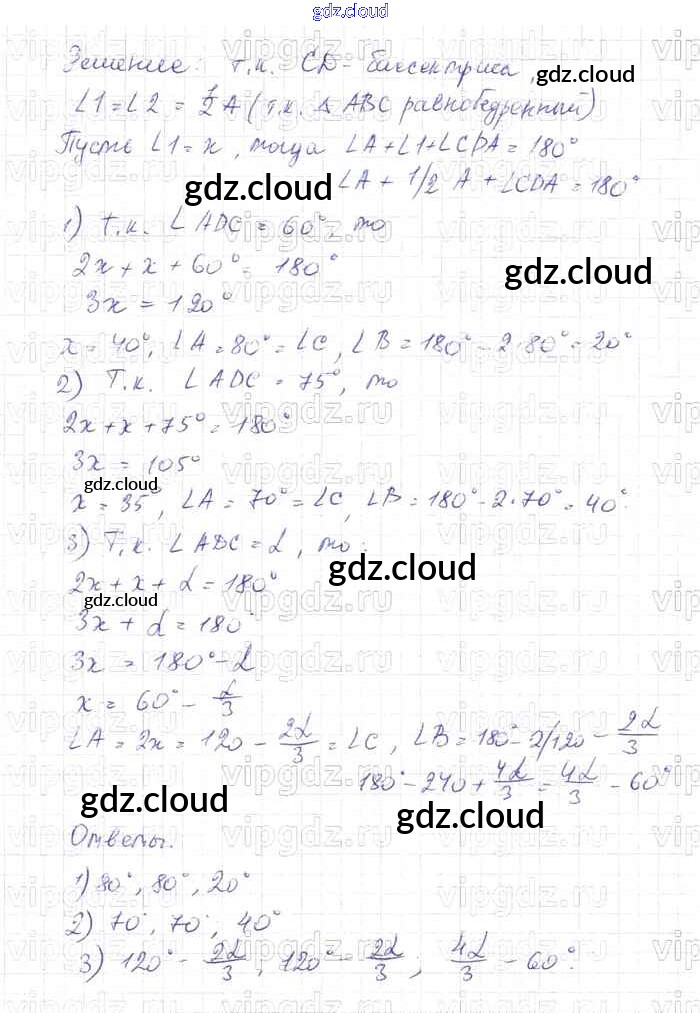 gdz.cloud
Решение: т.к. CD - биссектриса,
∠1 = ∠2 = 1/2 A (т.к. Δ ABC равнобедренный)
Пусть ∠1 = x, тогда ∠A + ∠1 + ∠CDA = 180°
gdz.cloud ∠A + 1/2 A + ∠CDA = 180°
1) т.к. ∠ADC = 60°, то
gdz.cloud
2x + x + 60° = 180°
3x = 120°
x = 40°, ∠A = 80° = ∠C, ∠B = 180° - 2·80° = 20°
2) Т.к. ∠ADC = 75°, то
2x + x + 75° = 180°
3x = 105°
gdz.cloud
x = 35°, ∠A = 70° = ∠C, ∠B = 180° - 2·70° = 40°.
3) Т.к. ∠ADC = α, то:
gdz.cloud
2x + x + α = 180°
gdz.cloud
3x + α = 180°
3x = 180° - α
x = 60° - α/3
∠A = 2x = 120 - 2α/3 = ∠C, ∠B = 180° - 2(120 - 2α/3
180° - 240 + 4α/3 = 4α/3 - 60°
gdz.cloud gdz.cloud
Ответы.
1) 80°, 80°, 20°
2) 70°, 70°, 40°
3) 120° - 2α/3, 120° - 2α/3; 4α/3 - 60°.